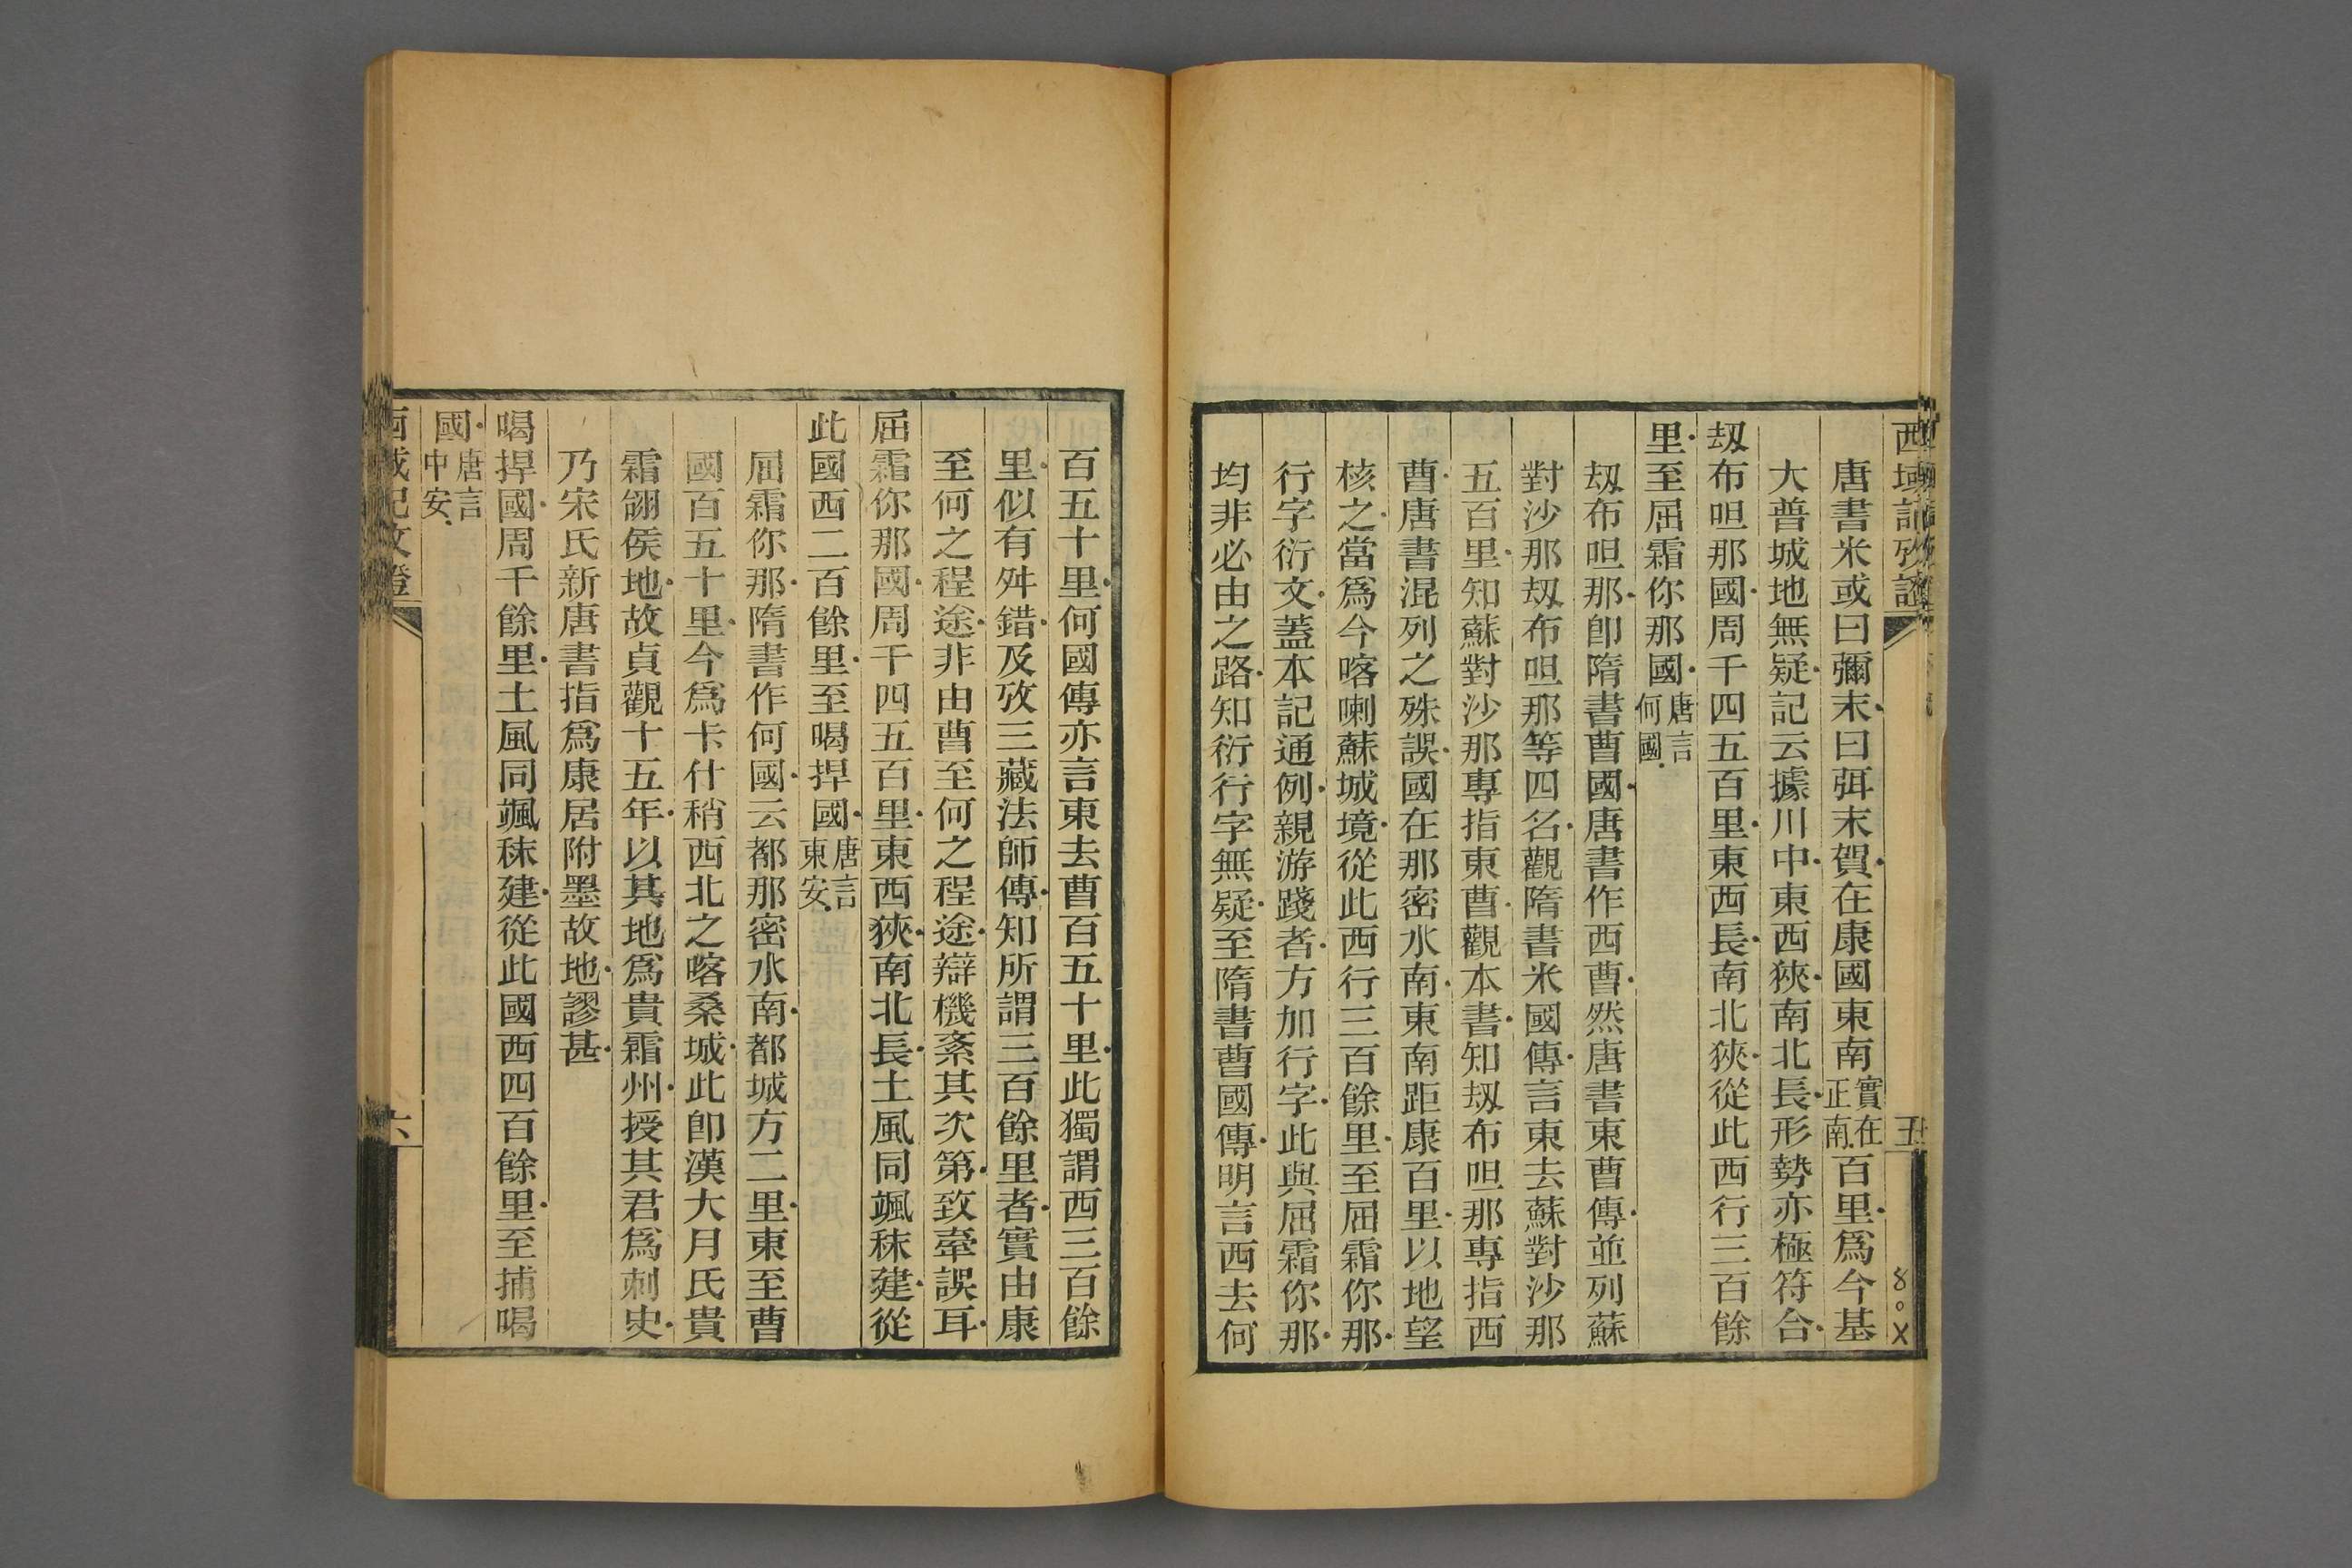 西域記攷證
五
唐書米或曰彌末．曰弭末賀．在康國東南實在正南．百里．爲今基
大普城地無疑．記云據川中．東西狹．南北長．形勢亦極符合．
刼布呾那國．周千四五百里．東西長．南北狹．從此西行三百餘
里．至屈霜你那國．唐言何國．
刼布呾那．卽隋書曹國．唐書作西曹．然唐書東曹傳．並列蘇
對沙那刼布呾那等四名．觀隋書米國傳．言東去蘇對沙那
五百里．知蘇對沙那專指東曹．觀本書．知刼布呾那專指西
曹．唐書混列之殊誤．國在那密水南．東南距康百里．以地望
核之．當爲今喀喇蘇城境．從此西行三百餘里．至屈霜你那．
行字衍文．蓋本記通例．親游踐者．方加行字．此與屈霜你那．
均非必由之路．知衍行字無疑．至隋書曹國傳．明言西去何
百五十里．何國傳亦言東去曹百五十里．此獨謂西三百餘
里．似有舛錯．及攷三藏法師傳．知所謂三百餘里者．實由康
至何之程途．非由曹至何之程途．辯機紊其次第．致牽誤耳．
屈霜你那國．周千四五百里．東西狹．南北長．土風同颯秣建．從
此國西二百餘里．至喝捍國．唐言東安．
屈霜你那．隋書作何國．云都那密水南．都城方二里．東至曹
國百五十里．今爲卡什稍西北之喀桑城．此卽漢大月氏貴
霜翖侯地．故貞觀十五年．以其地爲貴霜州．授其君爲刺史．
乃宋氏新唐書指爲康居附墨故地．謬甚．
喝捍國．周千餘里．土風同颯秣建．從此國西四百餘里．至捕喝
國．唐言中安．
西域記攷證
六